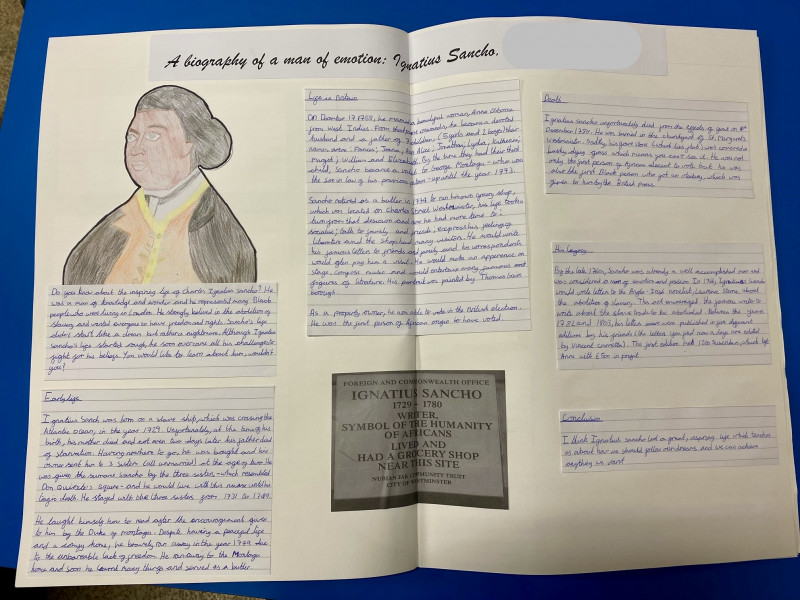 A biography of a man of emotion: Ignatius Sancho.
Do you know about the inspiring life of Charles Ignatius Sancho? He
was a man of knowledge and wonder and he represented many Black
people who were living in London. He strongly believed in the abolition of
slavery and wanted everyone to have freedom and rights. Sancho's life
didn't start like a dream but rather a nightmare. Although, Ignatius
Sancho's life started rough, he soon overcame all his challenges to
fight for his beliefs. You would like to learn about him, wouldn't
you?
Early life
Ignatius Sancho was born on a slave ship, which was crossing the
Atlantic Ocean, in the year 1729. Unfortunately, at the time of his
birth, his mother died and not even two days later his father died
of starvation. Having nowhere to go, he was bought and his
owner sent him to 3 sisters (all unmarried) at the age of two. He
was given the surname Sancho by the three sisters, -which resembled
Don Quixote's squire- and he would live with this name until his
death. He stayed with the three sisters from 1731 to 1749.
He taught himself how to read after the encouragement given
to him by the Duke of Montagu. Despite having a peaceful life
and a comfy home, he bravely ran away in the year 1749 due
to the unbearable lack of freedom. He ran away to the Montagu
home and soon he learnt many things and served as a butler.
Life in Britain
On December 17 1758, he married a beautiful woman, Anne Osborne
from West Indies. From that point onwards, he became a devoted
husband and a father of 7 children (5 girls and 2 boys). Their
names were: Frances, Joanna, Ann Alice, Jonathan, Lydia, Katherine,
Margaret, William and Elizabeth. By the time they had their third
child, Sancho became a valet to George Montagu - who was
the son in law of his previous - up until the year 1773.
Sancho retired as a butler in 1774 to run his own grocery shop,
which was located on Charles Street Westminster, his life took a
turn from that decision and now he had more time to:
socialise; talk to family and friends; express his feelings;
literature and the shop had many visitors. He would write
his famous letters to friends and family and his correspondents
would often pay him a visit. He would make an appearance on
stage, compose music and would entertain many famous
figures of literature. His portrait was painted by Thomas Gains
borough
As a property owner, he was able to vote in the British election.
He was the first person of African origin to have voted.
FOREIGN AND COMMONWEALTH OFFICE
IGNATIUS SANCHO
1729 - 1780
WRITER,
SYMBOL OF THE HUMANITY
OF AFRICANS
LIVED AND
HAD A GROCERY SHOP
NEAR THIS SITE
NUBIAN JAK COMMUNITY TRUST
CITY OF WESTMINSTER
Death
Ignatius Sancho unfortunately died from the effects of gout on
December 1780. He was buried in the churchyard of St. Margaret's
Westminster. Sadly, his was covered
by grass which means you can't see it. He was not
only the first person of African descent to vote but he was
also the first Black person who got an obituary, which was
given to him by the British press.
His Legacy
By the late 1760s, Sancho was already a well accomplished man and
was considered a man of emotion and reason. In 1766, Ignatius Sancho
would write letters to the Anglo-Irish novelist Laurence Sterne about
the abolition of slavery. This encouraged the famous writer to
write about the slave trade to be abolished. Between the years
1782 and 1803, his letters were published in five different
editions by his friends (the letters you find now a days are edited
by Vincent Carretta). The first edition
Anne with £500 in profit.
Conclusion
I think Ignatius Sancho led a great, inspiring life which teaches
us about how we should follow our dreams and we can achieve
anything we want